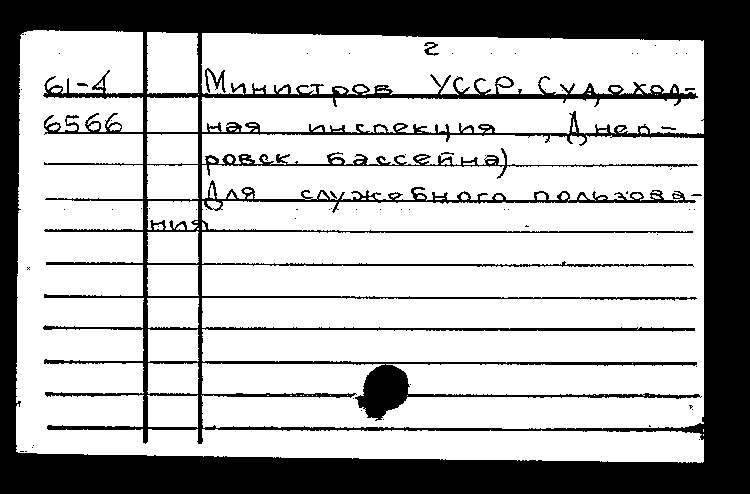 2
61-4 Министров УССР. Судоход-
6566 ная инспекция , Днеп-
ровск. бассейна)
Для служебного пользова-
ния